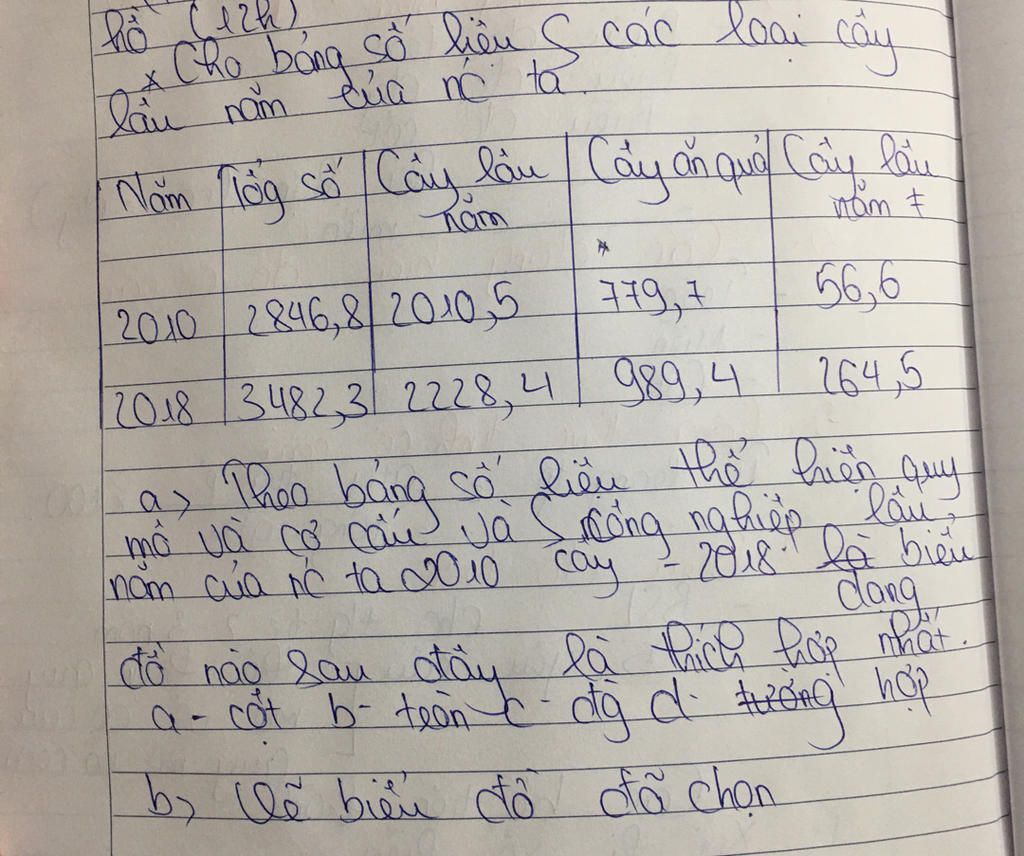 hồ (12h)
* Cho bảng số liệu S các loại cây
lâu năm của nc ta.
Năm Tổg số Cây lâu năm Cây ăn quả Cây lâu năm ≠
*
2010 2846,8 2010,5 779,7 56,6
2018 3482,3 2228,4 989,4 264,5
a, Theo bảng số liệu thể hiện quy
mô và cơ cấu và S công nghiệp lâu
năm của nc ta 2010 cây - 2018 là biểu
dang
đồ nào sau đây là thích hợp nhất.
a- cột b- tròn c- đg d- tương hợp
b, Vẽ biểu đồ đã chọn